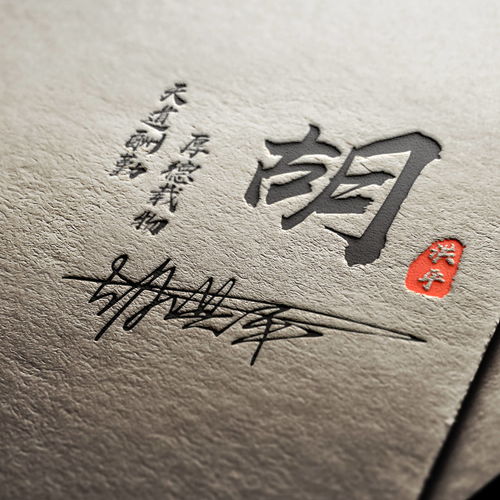 天道酬勤
厚德载物
胡
洪平